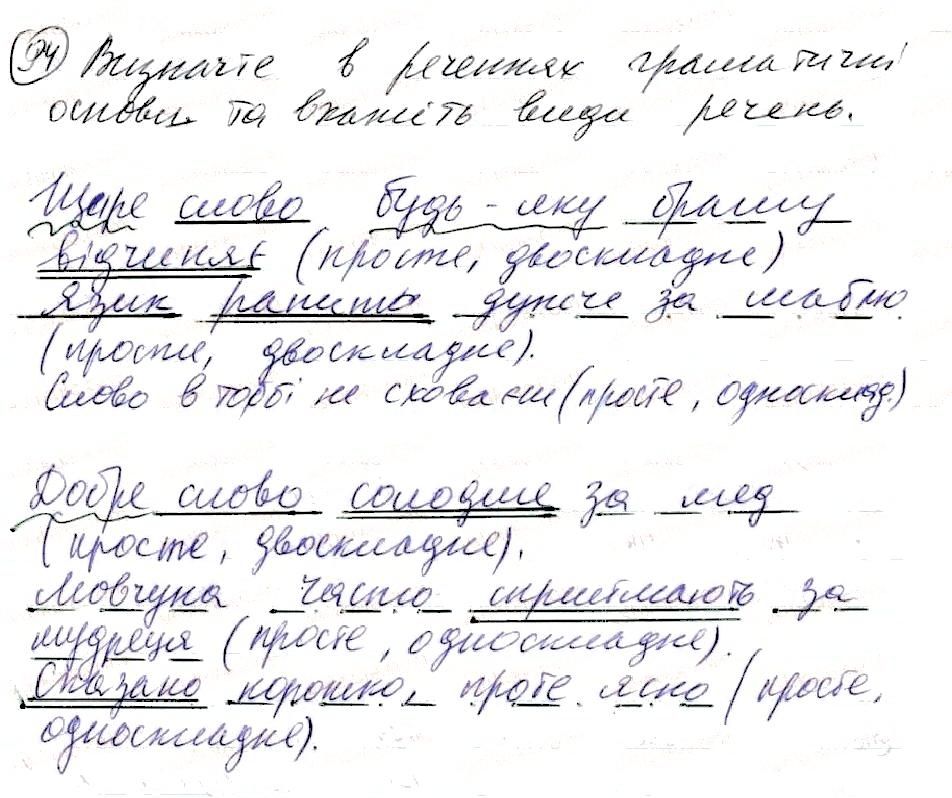 94 Визначте в реченнях граматичні
основи та вкажіть види речень.
Щире слово будь-яку браму
відчиняє (просте, двоскладне)
Язик ранить дужче за шаблю
(просте, двоскладне).
Слово в торбі не сховаєш (просте, односклад.)
Добре слово солодше за мед
(просте, двоскладне).
Мовчуна часто сприймають за
мудреця (просте, односкладне).
Сказано коротко, проте ясно (просте,
односкладне).